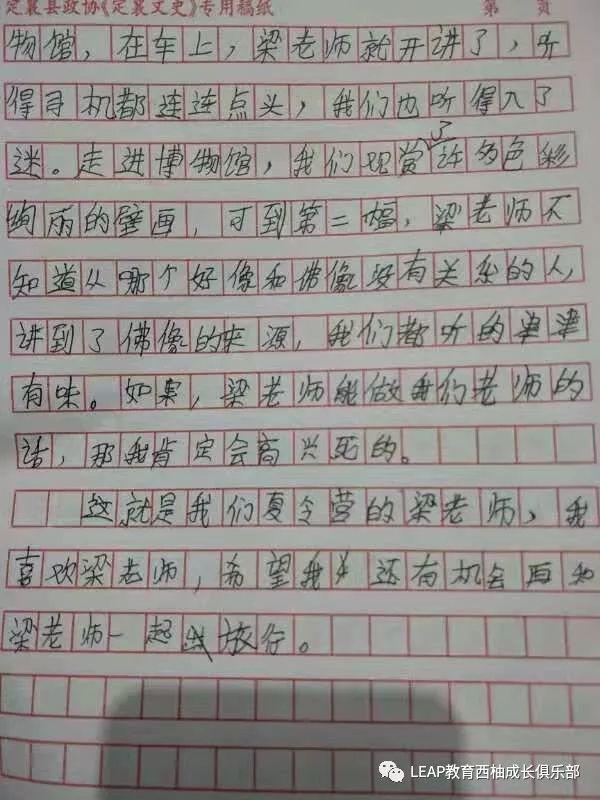 定襄县政协《定襄文史》专用稿纸 第 页
物馆，在车上，梁老师就开讲了，听
得司机都连连点头，我们也听得入了
迷。走进博物馆，我们观赏了许多色彩
绚丽的壁画，可到第二幅，梁老师不
知道从哪个好像和佛像没有关系的人，
讲到了佛像的来源，我们都听的津津
有味。如果，梁老师能做我们老师的
话，那我肯定会高兴死的。
这就是我们夏令营的梁老师，我
喜欢梁老师，希望我 还有机会再和
梁老师一起 旅行。
LEAP教育西柚成长俱乐部